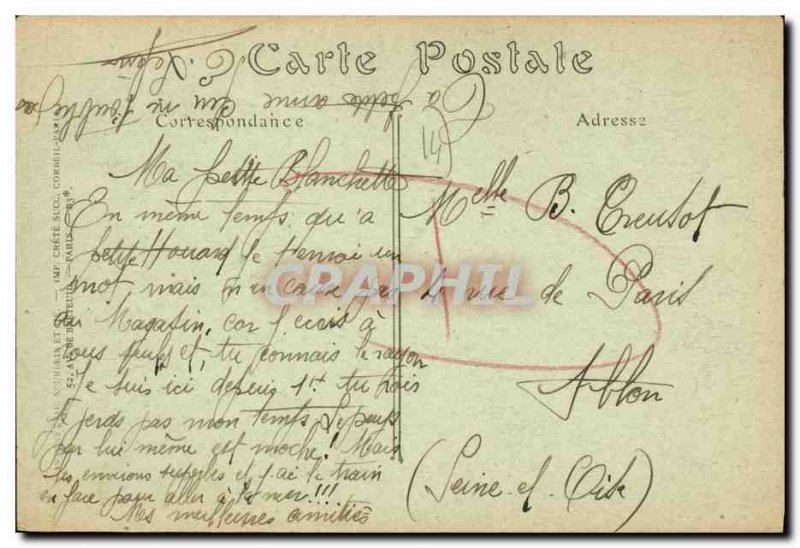 Carte Postale
Correspondance
Adresse
14
Ma petite Blanchette
En même temps qu'à
petite Houard je t'envoi un
mot, mais n'en cause pas
au Magasin, car j'écrois à
tous et, tu connais le rayon
Je suis ici depuis 1h tu vois
je perds pas mon temps. Le pays
par lui même est moche! Mais
les environs superbes et j'ai le train
en face pour aller à la mer!!!
Mes meilleures amitiés
Melle B. Creusot
4 rue de Paris
Ablon
(Seine-et-Oise)
CRAPHIL
IMP. CRÉTÉ SUCC. CORBEIL-PARIS
PARIS